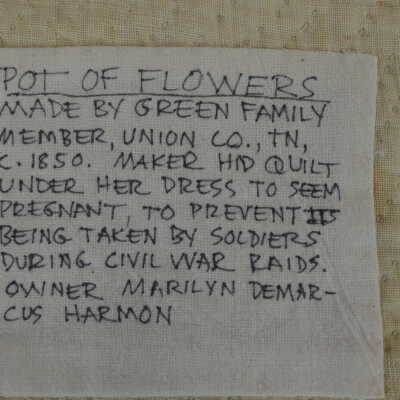 POT OF FLOWERS
MADE BY GREEN FAMILY
MEMBER, UNION CO., TN,
C. 1850. MAKER HID QUILT
UNDER HER DRESS TO SEEM
PREGNANT, TO PREVENT ITS
BEING TAKEN BY SOLDIERS
DURING CIVIL WAR RAIDS.
OWNER MARILYN DEMAR-
CUS HARMON